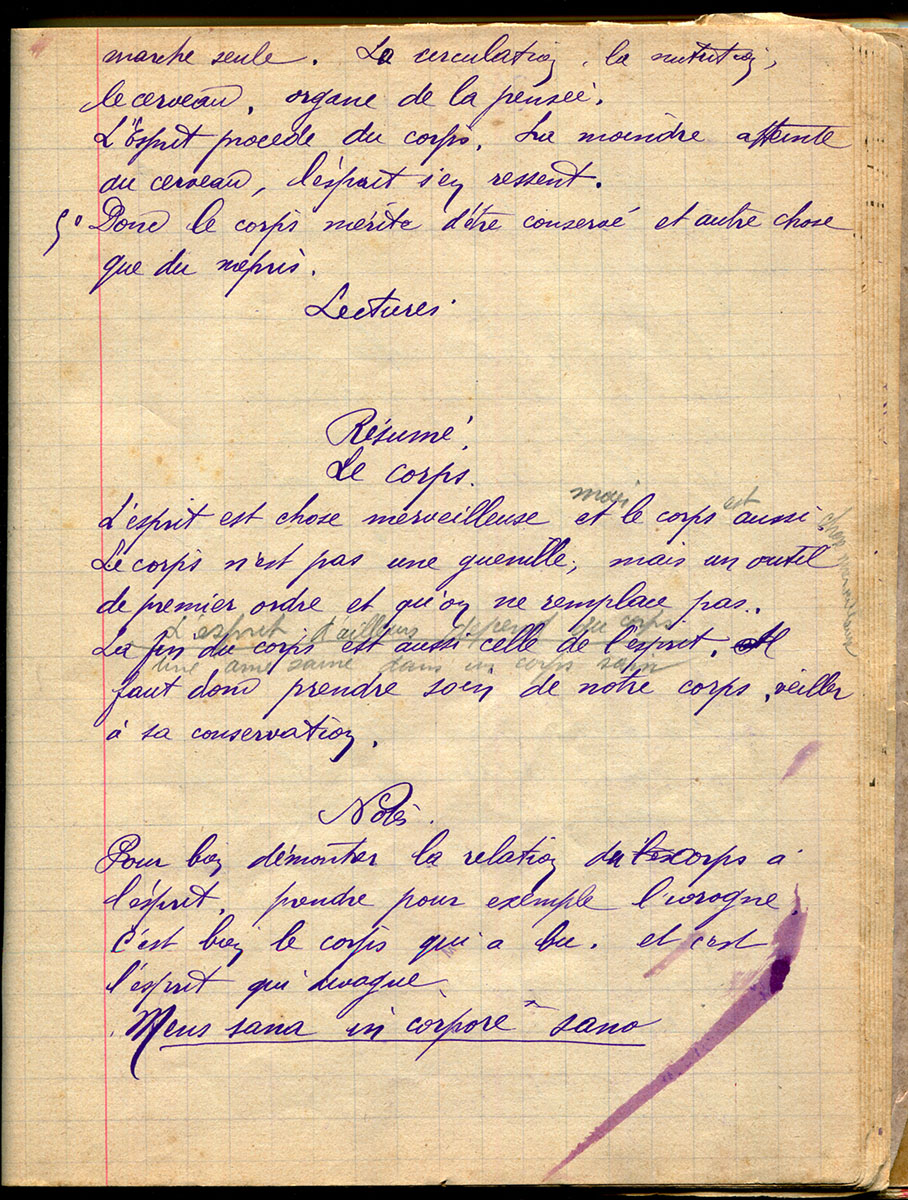 marche seule. La circulation, la nutrition,
le cerveau, organe de la pensée.
L'Esprit procède du corps. La moindre atteinte
du cerveau, l'esprit s'en ressent.
5° Donc le corps mérite d'être conservé et autre chose
que du mépris.
Lectures
Résumé
Le corps.
mais est
L'esprit est chose merveilleuse et le corps aussi.
Le corps n'est pas une guenille, mais un outil
de premier ordre et qu'on ne remplace pas.
L'esprit d'ailleurs dépend du corps
La fin du corps est aussi celle de l'esprit. Il
une âme saine dans un corps sain
faut donc prendre soin de notre corps, veiller
à sa conservation.
Notes.
Pour bien démontrer la relation du corps à
l'esprit, prendre pour exemple l'ivrogne.
C'est bien le corps qui a bu. et c'est
l'esprit qui divague.
Mens sana in corpore sano